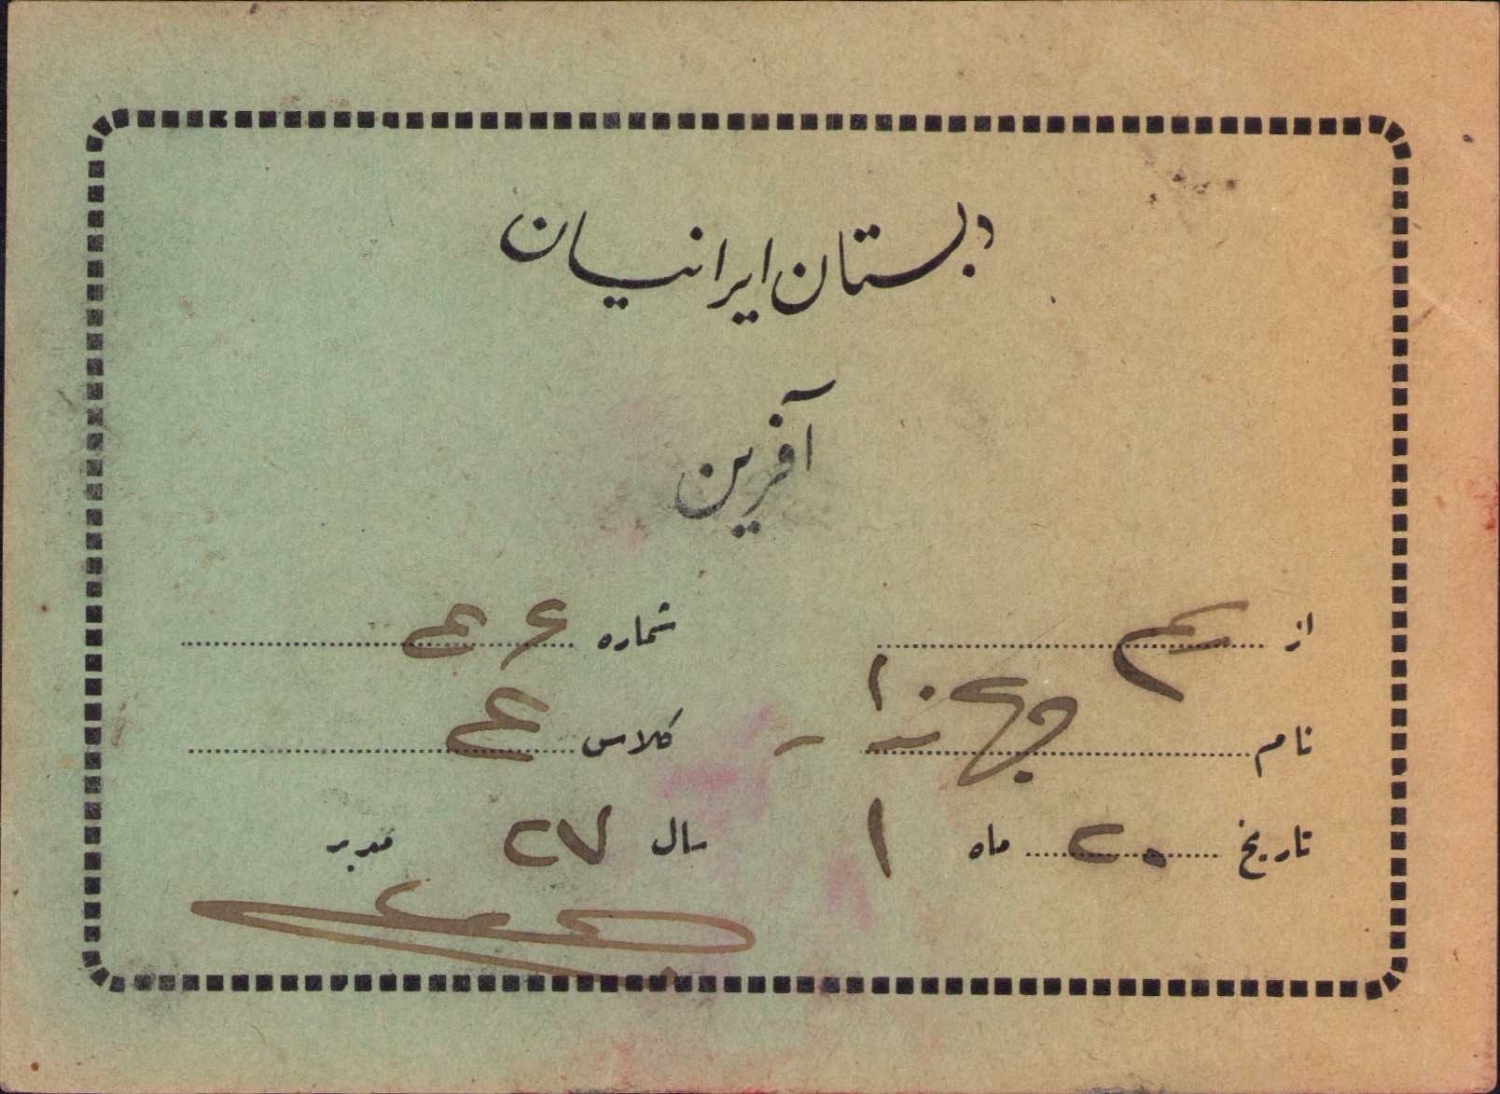 دبستان ایرانیان
آفرین
از شماره ۶۴
نام کلاس ۴
تاریخ ۲۰ ماه ۱ سال ۲۷ مدیر